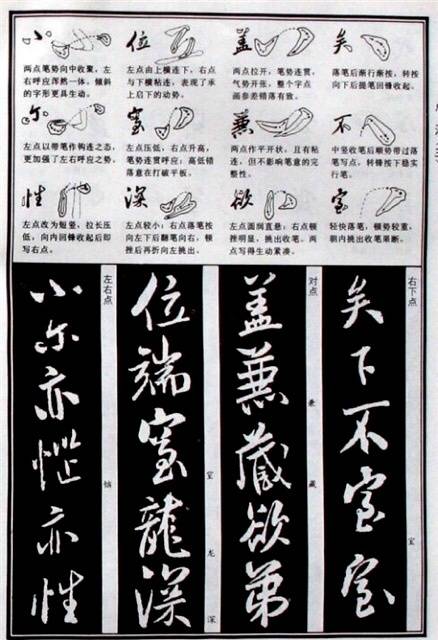 小
两点笔势向中收聚，左
右呼应浑然一体，倾斜
的字形更具生动。
位
左点由上横连下，右点
与下横粘连，表现了承
上启下的动势。
盖
两点拉开，笔势连贯，
气势开张，整个字点
画参差错落有致。
矣
落笔后渐行渐按，转按
向下后提笔回锋收起。
尔
左点以带笔作钩连之态，
更加强了左右呼应之势。
室
左点压低，右点升高，
笔势连贯呼应；高低错
落意在打破平板。
兼
两点作平开状，且有粘
连，但不影响笔意的完
整性。
不
中竖收笔后顺势带过落
笔写点，转锋按下稳实
行笔。
性
左点改为短竖，拉长压
低，向内回锋收起后即
写右点。
深
左点较小；右点落笔按
向左下后翻笔向右，顿
挫后再折向左挑出。
欲
左点圆润直悬；右点顿
挫明显，挑出收笔。两
点写得生动紧凑。
室
轻快落笔，顿势较重，
朝内挑出收笔果断。
右下点
矣下不室室
宝
对点
盖兼藏欲弟
兼
藏
位端室龙深
室
龙
深
左右点
小尔亦恼亦性
恼